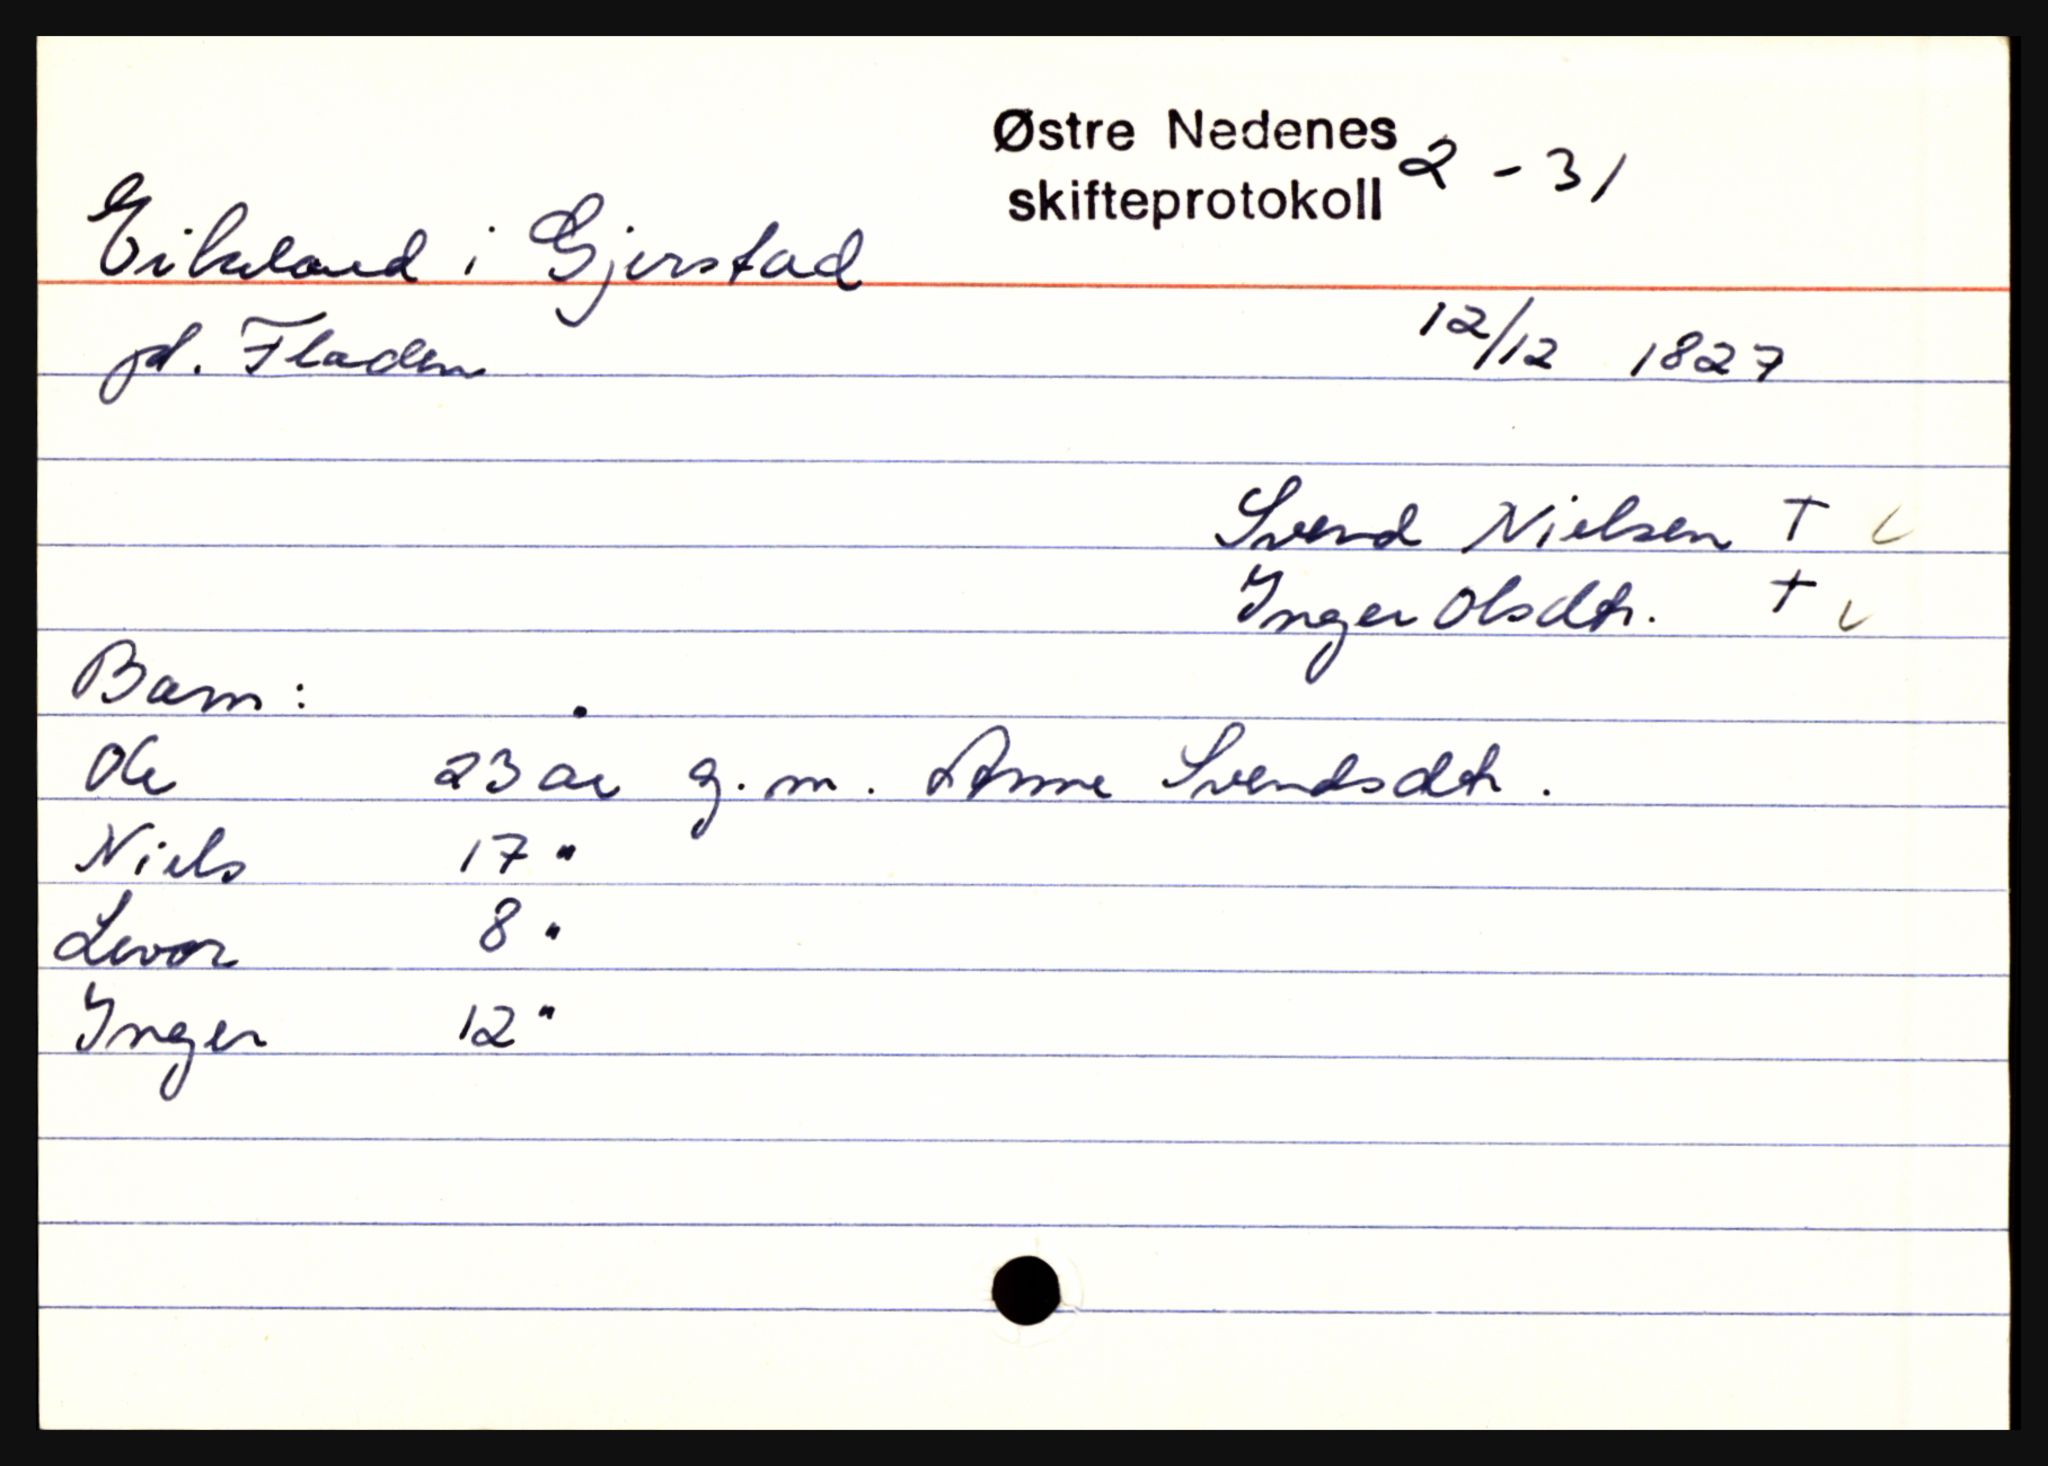 Østre Nedenes
skifteprotokoll 2-31
Eikeland i Gjerstad
pl. Fladen 12/12 1827
Svend Nielsen †
Inger Olsdtr. †
Barn:
Ole 23 år g. m. Anne Svendsdtr.
Niels 17 "
Levor 8 "
Inger 12 "